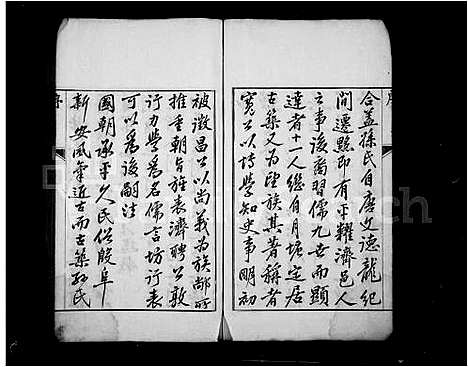 合蓋孫氏自唐文德龍紀
間遷黟即有平糶濟邑人
之事後裔習儒九世而顯
達者十一人繼自月塘定居
古築又為望族其著稱者
寬公以詩學知史事明初
被徵昌公以尚義为族鄰所
推重朝旨旌表濟聘公敦
行力學為名儒言坊行表
可以為後嗣法
國朝承平久民俗殷阜
新安風氣近古而古築孫氏